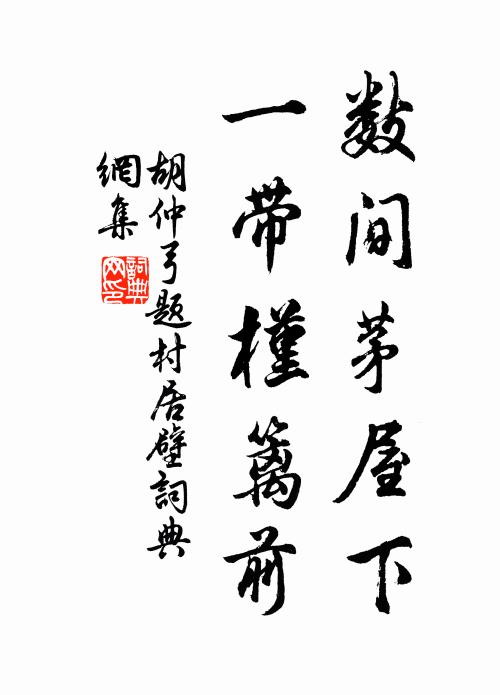 数间茅屋下
一带槿篱前
胡仲弓题村居壁詞典
網集
詞典
网印